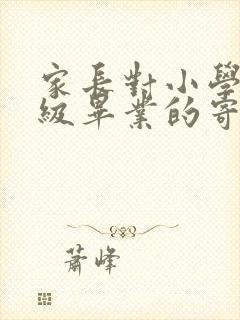 家長對小學
級畢業的寄
蕭峰